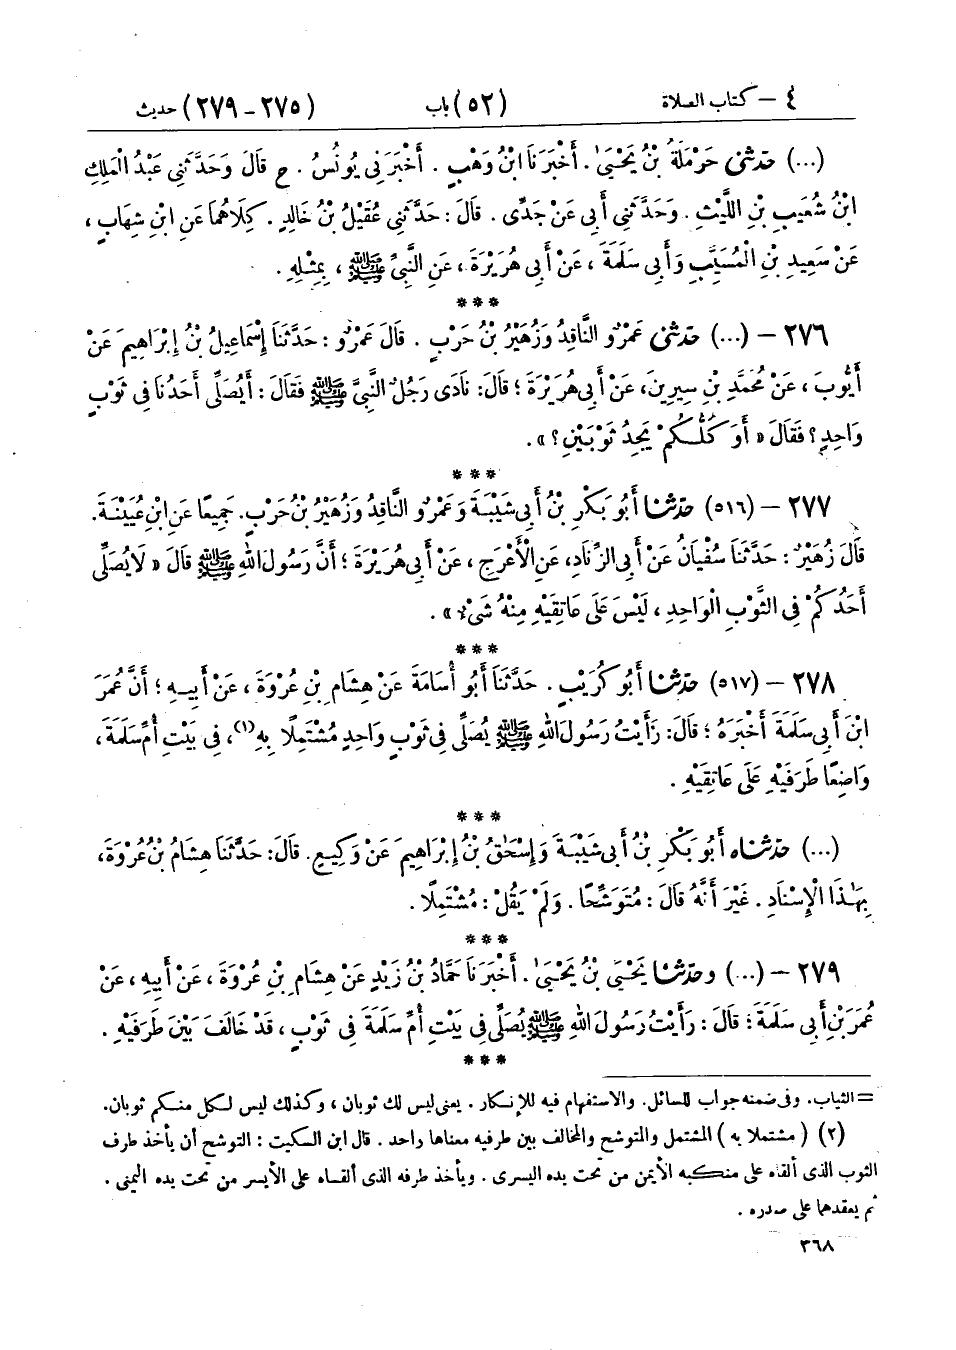 ٤ – كتاب الصلاة (٥٢) باب (٢٧٥ – ٢٧٩) حديث
(...) حَدَّثَنِي حَرْمَلَةُ بْنُ يَحْيَىٰ. أَخْبَرَنَا ابْنُ وَهْبٍ. أَخْبَرَنِي يُونُسُ. ح قَالَ وَحَدَّثَنِي عَبْدُ الْمَلِكِ
ابْنُ شُعَيْبِ بْنِ اللَّيْثِ. وَحَدَّثَنِي أَبِي عَنْ جَدِّي. قَالَ: حَدَّثَنِي عُقَيْلُ بْنُ خَالِدٍ. كِلَاهُمَا عَنِ ابْنِ شِهَابٍ،
عَنْ سَعِيدِ بْنِ الْمُسَيَّبِ وَأَبِي سَلَمَةَ، عَنْ أَبِي هُرَيْرَةَ، عَنِ النَّبِيِّ ﷺ، بِمِثْلِهِ.
***
٢٧٦ – (...) حَدَّثَنِي عَمْرٌو النَّاقِدُ وَزُهَيْرُ بْنُ حَرْبٍ. قَالَ عَمْرٌو: حَدَّثَنَا إِسْمَاعِيلُ بْنُ إِبْرَاهِيمَ عَنْ
أَيُّوبَ، عَنْ مُحَمَّدِ بْنِ سِيرِينَ، عَنْ أَبِي هُرَيْرَةَ؛ قَالَ: نَادَى رَجُلٌ النَّبِيَّ ﷺ فَقَالَ: أَيُصَلِّي أَحَدُنَا فِي ثَوْبٍ
وَاحِدٍ؟ فَقَالَ «أَوَ كُلُّكُمْ يَجِدُ ثَوْبَيْنِ؟».
***
٢٧٧ – (٥١٦) حَدَّثَنَا أَبُو بَكْرِ بْنُ أَبِي شَيْبَةَ وَعَمْرٌو النَّاقِدُ وَزُهَيْرُ بْنُ حَرْبٍ. جَمِيعًا عَنِ ابْنِ عُيَيْنَةَ.
قَالَ زُهَيْرٌ: حَدَّثَنَا سُفْيَانُ عَنْ أَبِي الزِّنَادِ، عَنِ الْأَعْرَجِ، عَنْ أَبِي هُرَيْرَةَ؛ أَنَّ رَسُولَ اللهِ ﷺ قَالَ «لَا يُصَلِّي
أَحَدُكُمْ فِي الثَّوْبِ الْوَاحِدِ، لَيْسَ عَلَى عَاتِقَيْهِ مِنْهُ شَيْءٌ».
***
٢٧٨ – (٥١٧) حَدَّثَنَا أَبُو كُرَيْبٍ. حَدَّثَنَا أَبُو أُسَامَةَ عَنْ هِشَامِ بْنِ عُرْوَةَ، عَنْ أَبِيهِ؛ أَنَّ عُمَرَ
ابْنَ أَبِي سَلَمَةَ أَخْبَرَهُ؛ قَالَ: رَأَيْتُ رَسُولَ اللهِ ﷺ يُصَلِّي فِي ثَوْبٍ وَاحِدٍ مُشْتَمِلًا بِهِ(١)، فِي بَيْتِ أُمِّ سَلَمَةَ،
وَاضِعًا طَرَفَيْهِ عَلَى عَاتِقَيْهِ.
***
(...) حَدَّثَنَاه أَبُو بَكْرِ بْنُ أَبِي شَيْبَةَ وَإِسْحَٰقُ بْنُ إِبْرَاهِيمَ عَنْ وَكِيعٍ. قَالَ: حَدَّثَنَا هِشَامُ بْنُ عُرْوَةَ،
بِهَٰذَا الْإِسْنَادِ. غَيْرَ أَنَّهُ قَالَ: مُتَوَشِّحًا. وَلَمْ يَقُلْ: مُشْتَمِلًا.
***
٢٧٩ – (...) وحَدَّثَنَا يَحْيَىٰ بْنُ يَحْيَىٰ. أَخْبَرَنَا حَمَّادُ بْنُ زَيْدٍ عَنْ هِشَامِ بْنِ عُرْوَةَ، عَنْ أَبِيهِ، عَنْ
عُمَرَ بْنِ أَبِي سَلَمَةَ؛ قَالَ: رَأَيْتُ رَسُولَ اللهِ ﷺ يُصَلِّي فِي بَيْتِ أُمِّ سَلَمَةَ فِي ثَوْبٍ، قَدْ خَالَفَ بَيْنَ طَرَفَيْهِ.
***
= الثياب. وفى ضمنه جواب للسائل. والاستفهام فيه للإنكار. يعنى ليس لك ثوبان، وكذلك ليس لكل منكم ثوبان.
(٢) (مشتملا به) المشتمل والمتوشح والمخالف بين طرفيه معناها واحد. قال ابن السكيت: التوشح أن يأخذ طرف
الثوب الذى ألقاه على منكبه الأيمن من تحت يده اليسرى. ويأخذ طرفه الذى ألقاه على الأيسر من تحت يده اليمنى.
ثم يعقدهما على صدره.
٣٦٨